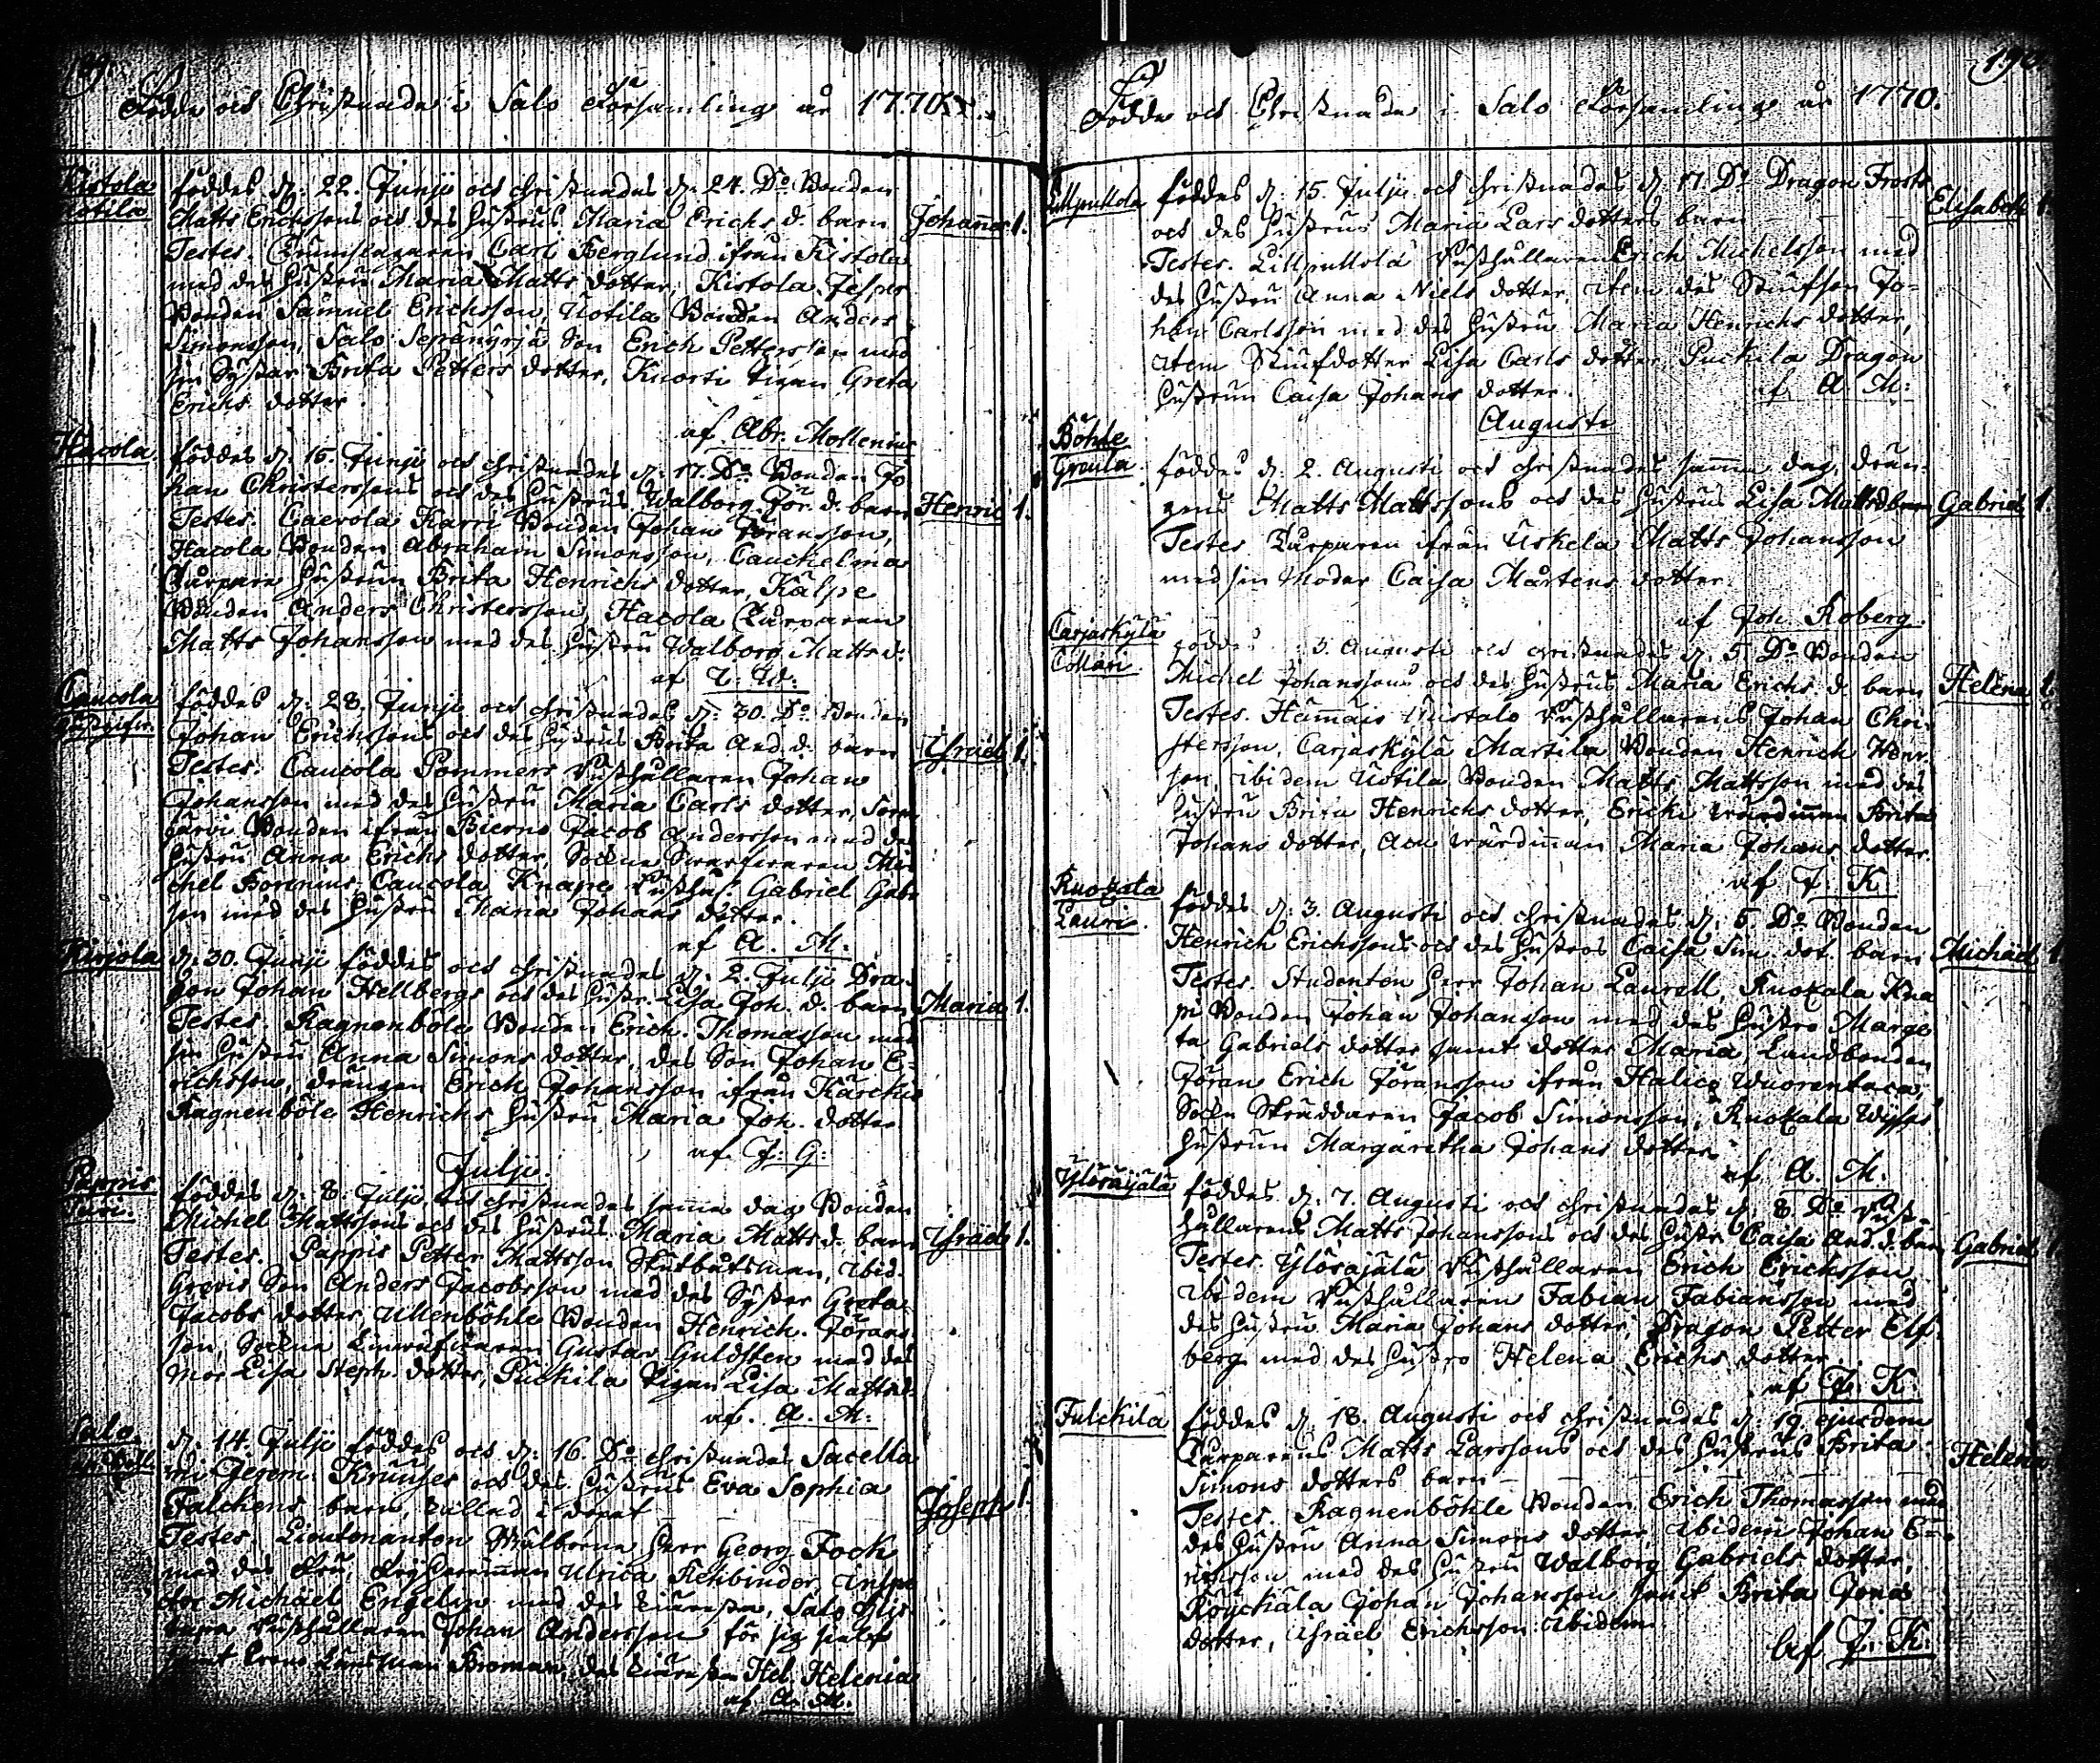 189.
Födde och Christnade i Salo Församling år 1770.
Kistola
Uotila
föddes d. 22. Junii och christnades d. 24. Do Bonden
Matts Erichssons och des hustrus Maria Erichs d. barn
Johannes 1.
Testes. Carl Berglund ifrån Kistola
med des hustru Maria Matts dotter, Kistola Jesper
Bonden Samuel Erichsson, Uotila Bonden Anders
Simonsson, Salo Son Erich Pettersson med
sin Syster Brita Petters dotter, Knorti Pigan Greta
Erichs dotter.
af Abr. Mollenius
Hacola
föddes d. 15. Junii och christnades d. 17. Do Bonden Jo
han Christerssons och des hustrus Walborg Jör. d. barn
Henric 1.
Testes. Caerola Karri Bonden Johan Jöransson,
Hacola Bonden Abraham Simonsson, Cauckelma
hustrun Brita Henrichs dotter, Kälpe
Bonden Anders Christersson, Hacola Torparen
Matts Johansson med des hustru Walborg Matts d.
Caucola
föddes d. 28. Junii och christnades d. 30. Do Bonden
Johan Erichssons och des hustrus Brita And. d. barn
Israel 1.
Testes. Caucola Pommers Rusthållaren Johan
Johansson med des hustru Maria Carls dotter,
järvi Bonden ifrån Bierno Jacob Andersson med des
hustru Anna Erichs dotter, Sockne Mi
chel Borenius, Caucola Knape Rusthål. Gabriel Gabr.
son med des hustru Maria Johans dotter.
af A. M:
Kirjola
d. 30. Junii föddes och christnades d. 2. Julii Dra
gon Johan Hellbergs och des hustr. Lisa Joh. d. barn
Maria 1.
Testes. Kagnenböle Bonden Erich Thomasson med
sin hustru Anna Simons dotter, des Son Johan E-
richsson, drängen Erich Johansson ifrån Kärckis
Kagnenböle Henrichs hustru Maria Joh. dotter.
af J: G:
Julii.
Pappis
föddes d. 8. Julii och christnades samma dag Bonden
Michel Mattssons och des hustrus Maria Matts d. barn
Israel 1.
Testes. Pappis Petter Mattsson Skutbåtsman, ibid.
Grevis Son Anders Jacobsson med des Syster Greta
Jacobs dotter, Ullenböhle Bonden Henrich Jörans
son, Sockne Gustav Guldsten med des
mor Lisa Steph. dotter, Puckila Pigan Lisa Matts d.
af. A. M:
Salo
d. 14. Julii föddes och d. 16. Do christnades Sacella
ni Jerem. Kruuses och des hustrus Eva Sophia
Falckens barn, kallad i dopet
Joseph 1.
Testes. Lieutenanten Wälborne Herr Georg Fock
med des Fru, Ulrica Rehbinder, Inspe
ctor Michäel Engelin med des käresta, Salo
Rusthållaren Johan Andersson för sig sielf
samt Broman, des käresta Hel. Helenia
af A. M.
190.
Födde och Christnade i Salo Församling år 1770.
Lillpullola
föddes d. 15. Julii och christnades d. 17. Do Dragon Frosts
och des hustrus Maria Lars dotters barn
Elisabeth 1.
Testes. Lillpullola Rusthållaren Erich Michelsson med
des hustru Anna Niels dotter, item des Stiufson Jo-
han Carlsson med des hustru Maria Henrichs dotter,
item Stiufdotter Lisa Carls dotter, Puckila Dragon
hustrun Caisa Johans dotter.
af A M:
Augusti
Böhle
Groula
föddes d. 2. Augusti och christnades samma dag drän-
gens Matts Mattssons och des hustrus Lisa Matts d. barn
Gabriel 1.
Testes Torparen ifrån Uskela Matts Johansson
med sin Moder Caisa Mårtens dotter.
af Joh. Roberg.
Carjaskylä
Collari
föddes 3. Augusti och christnades d. 5. Do Bonden
Michel Johanssons och des hustrus Maria Erichs d. barn
Helena 1.
Testes. Hammais Uustalo Rusthållarens Johan Chri
stersson, Carjaskylä Martila Bonden Henrich Henr.
son, ibidem Uotila Bonden Matts Mattsson med des
hustru Brita Henrichs dotter, Ericki wärdinnan Brita
Johans dotter, wärdinnan Maria Johans dotter.
af J: K
Knozala
Lauri.
föddes d. 3. Augusti och christnades d. 5. Do Bonden
Henrich Erichssons och des hustrus Caisa Sim dot. barn
Michäel 1.
Testes. Studenten Herr Johan Laurell, Knozala Kna
pi Bonden Johan Johansson med des hustro Marge
ta Gabriels dotter samt dotter Maria, Landbonden
Jöran Erich Jöransson ifrån Halico Wuorentaca,
Sockn Skräddaren Jacob Simonsson, Knozala
hustrun Margaretha Johans dotter.
af A. M.
Ylöräjälä
föddes d. 7. Augusti och christnades d. 8. Do Rust-
hållarens Matts Johanssons och des hustr. Caisa And. d. barn
Gabriel 1.
Testes. Ylöräjälä Rusthållaren Erich Erichsson
ibidem Rusthållaren Fabian Fabiansson med
des hustru Maria Johans dotter, Dragon Petter Elf
berg med des hustro Helena Erichs dotter
af J. K.
Fulckila
föddes d. 18. Augusti och christnades d. 19. ejusdem
Torparens Matts Larssons och des hustrus Brita
Simons dotters barn
Helena
Testes. Kagnenböhle Bonden Erich Thomasson med
des hustru Anna Simons dotter, ibidem Johan E
richsson med des hustru Walborg Gabriels dotter,
Röyckälä Johan Johansson samt Brita Jona
dotter, Israel Erichsson ibidem.
Af J. K.